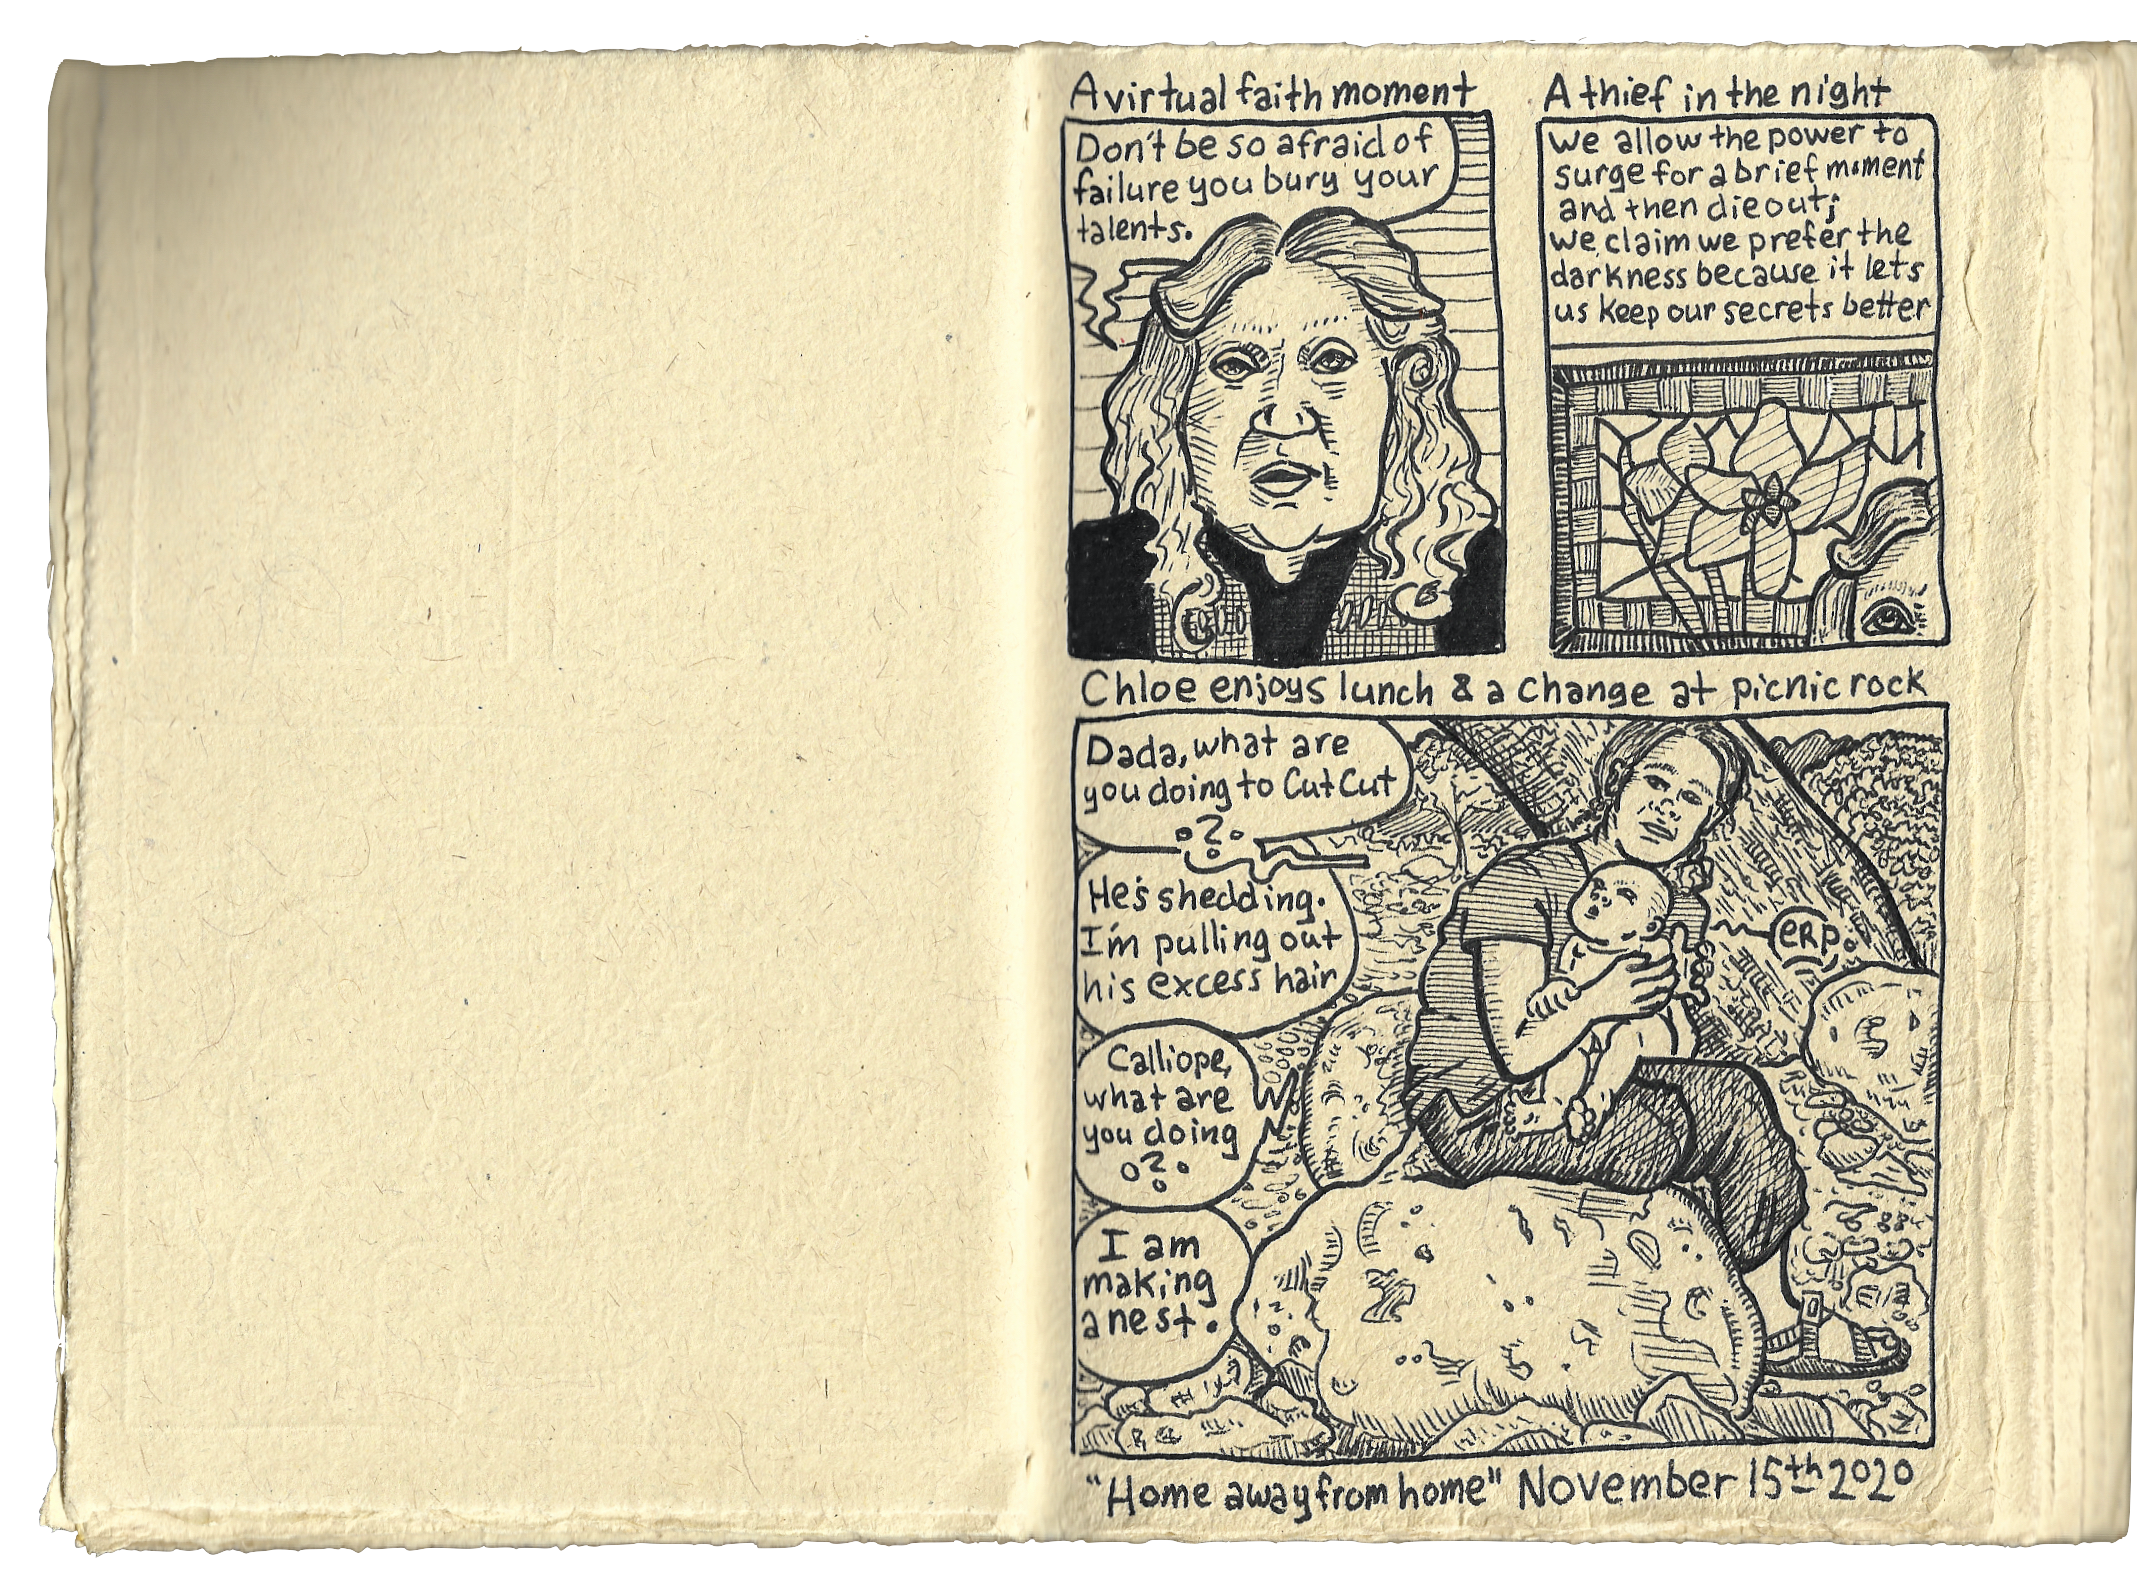 A virtual faith moment
Don't be so afraid of
failure you bury your
talents.
A thief in the night
we allow the power to
surge for a brief moment
and then die out;
we claim we prefer the
darkness because it lets
us keep our secrets better
Chloe enjoys lunch & a change at picnic rock
Dada, what are
you doing to CutCut
?
He's shedding.
I'm pulling out
his excess hair
Calliope,
what are
you doing
?
I am
making
a nest.
eRp.
"Home away from home" November 15th 2020